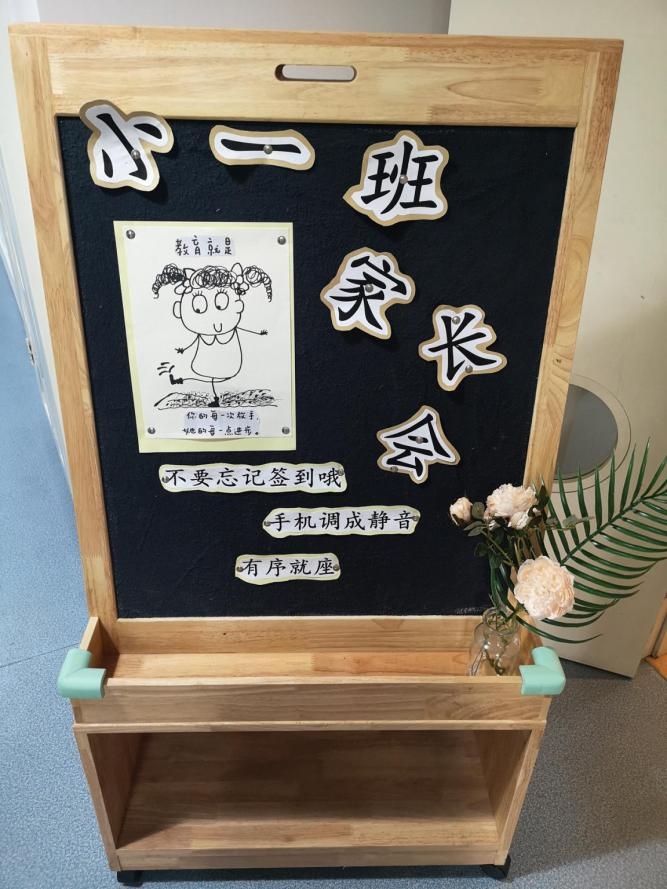 小一班
家长会
教育就是
你的每一次放手,
她的每一点进步。
不要忘记签到哦
手机调成静音
有序就座